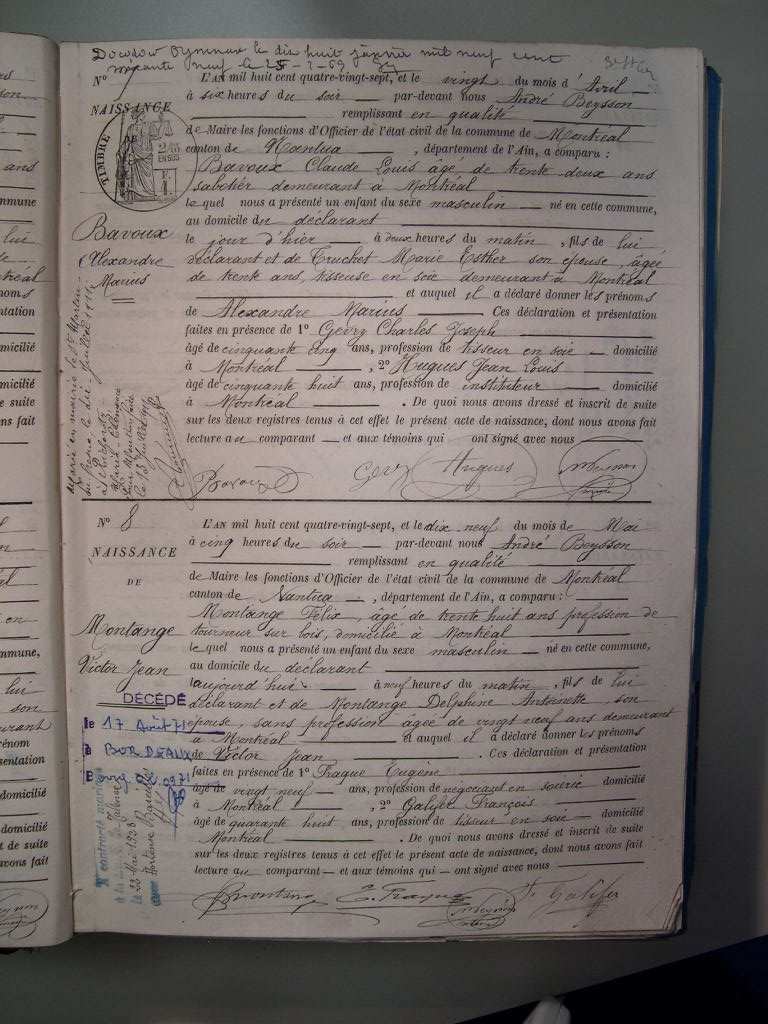 le dix huit janvier mil neuf cent
soixante neuf le 25-2-69
N° 7
NAISSANCE
DE
TIMBRE
Bavoux
Alexandre
Marius
L'AN mil huit cent quatre-vingt-sept, et le vingt du mois d'Avril
à six heures du soir par-devant nous André Beysson
remplissant en qualité
de Maire les fonctions d'Officier de l'état civil de la commune de Montréal
canton de Nantua, département de l'Ain, a comparu :
Bavoux Claude Louis âgé de trente deux ans
sabotier demeurant à Montréal
lequel nous a présenté un enfant du sexe masculin né en cette commune,
au domicile du déclarant
le jour d'hier à deux heures du matin, fils de lui
déclarant et de Truchet Marie Esther son épouse, âgée
de trente ans, tisseuse en soie demeurant à Montréal
et auquel il a déclaré donner les prénoms
de Alexandre Marius Ces déclaration et présentation
faites en présence de 1° Georg Charles Joseph
âgé de cinquante cinq ans, profession de tisseur en soie domicilié
à Montréal, 2° Hugues Jean Louis
âgé de cinquante huit ans, profession de instituteur domicilié
à Montréal. De quoi nous avons dressé et inscrit de suite
sur les deux registres tenus à cet effet le présent acte de naissance, dont nous avons fait
lecture au comparant et aux témoins qui ont signé avec nous
Bavoux Hugues
N° 8
NAISSANCE
DE
Montange
Victor Jean
DÉCÉDÉ
le 17 Août 71
à BORDEAUX
L'AN mil huit cent quatre-vingt-sept, et le dix neuf du mois de Mai
à cinq heures du soir par-devant nous André Beysson
remplissant en qualité
de Maire les fonctions d'Officier de l'état civil de la commune de Montréal
canton de Nantua, département de l'Ain, a comparu :
Montange Félix, âgé de trente huit ans profession de
tourneur sur bois, domicilié à Montréal
lequel nous a présenté un enfant du sexe masculin né en cette commune,
au domicile du déclarant
aujourd'hui à neuf heures du matin, fils de lui
déclarant et de Montange Delphine Antoinette son
épouse, sans profession âgée de vingt neuf ans demeurant
à Montréal et auquel il a déclaré donner les prénoms
de Victor Jean. Ces déclaration et présentation
faites en présence de 1° Fraque Eugène
âgé de vingt neuf ans, profession de négociant en soierie domicilié
à Montréal, 2° Galifer François
âgé de quarante huit ans, profession de tisseur en soie domicilié
Montréal. De quoi nous avons dressé et inscrit de suite
sur les deux registres tenus à cet effet le présent acte de naissance, dont nous avons fait
lecture au comparant et aux témoins qui ont signé avec nous
Montange